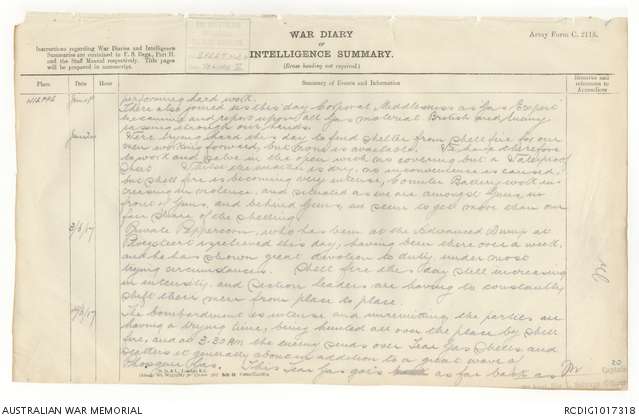 Army Form C. 2118.
WAR DIARY
or
INTELLIGENCE SUMMARY.
(Erase heading not required.)
Instructions regarding War Diaries and Intelligence
Summaries are contained in F. S. Regs., Part II.
and the Staff Manual respectively. Title pages
will be prepared in manuscript.
Place
Date
Hour
Summary of Events and Information
Remarks and
references to
Appendices
NIEPPE
performing hard work.
There also joined us this day Corporal Middlemiss as Gas Expert
to examine and report upon all gas material British and enemy
passing through our hands.
Were trying hard this day to find shelter from shell fire for our
men working forward, but none is available. We have therefore
to work and salve in the open with as covering but a Waterproof
Sheet. Whilst the weather is dry, no inconvenience is caused,
but shell fire is becoming very intense, Counter Battery work in-
creasing in violence, and situated as we are amongst Guns, in
front of Guns, and behind Guns, we seem to get more than our
fair share of the shelling.
3/6/17
Private Pepperson, who has been at the Advanced Dump at
Ploegsteert is relieved this day, having been there over a week,
and he has shown great devotion to duty under most
trying circumstances. Shell fire this day still increasing
in intensity, and Section leaders are having to constantly
shift their men from place to place.
4/6/17
The bombardment is intense and unremitting, the parties are
having a trying time, being hunted all over the place by shell
fire, and at 3.30 AM the enemy sends over Tear Gas Shells and
scatters it generally about in addition to a great wave of
Phosgene Gas. This Tear Gas goes as far back as
20
Captain
AUSTRALIAN WAR MEMORIAL
RCDIG1017318